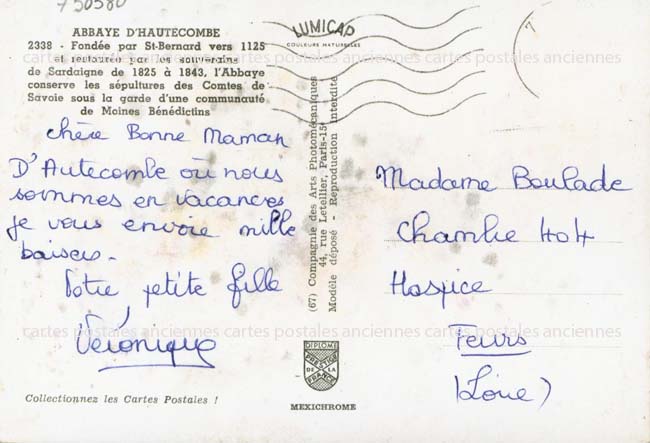 750580
ABBAYE D'HAUTECOMBE
2338 - Fondée par St-Bernard vers 1125
et restaurée par les souverains
de Sardaigne de 1825 à 1843, l'Abbaye
conserve les sépultures des Comtes de
Savoie sous la garde d'une communauté
de Moines Bénédictins
LUMICAP
COULEURS NATURELLES
chère Bonne Maman
D'Autecombe où nous
sommes en vacances
je vous envoie mille
baisers.
Votre petite fille
Véronique
Collectionnez les Cartes Postales !
(67) Compagnie des Arts Photomécaniques
44, rue Letellier, Paris-15e
Modèle déposé - Reproduction interdite
DIPLOME
PRESTIGE
DE LA
FRANCE
MEXICHROME
Madame Boulade
Chambre 404
Hospice
Feurs
(Loire)
cartes postales anciennes cartes postales anciennes cartes postales anciennes
cartes postales anciennes cartes postales anciennes cartes postales anciennes